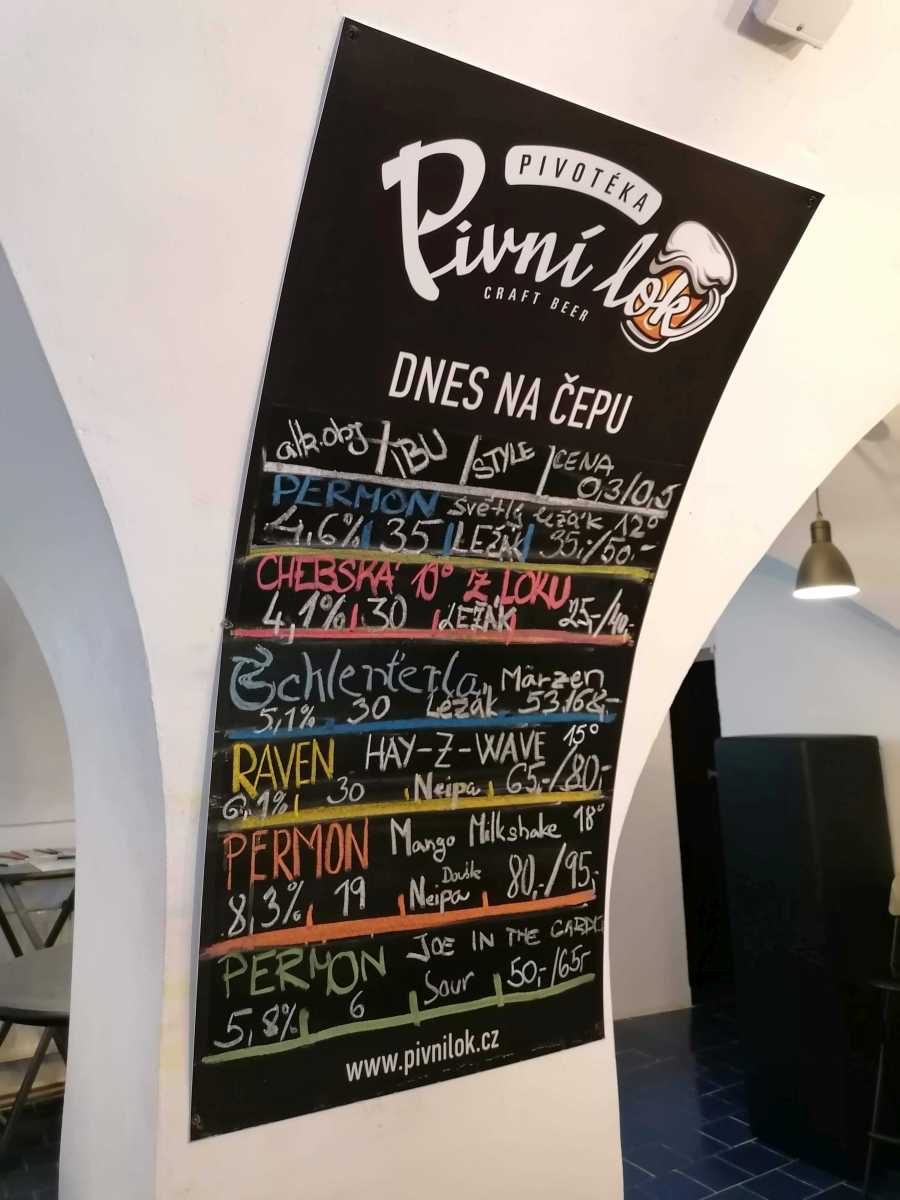 PIVOTÉKA
Pivní lok
CRAFT BEER
DNES NA ČEPU
alk.obj IBU STYLE CENA
0,3/0,5
PERMON světlý ležák 12°
4,6% 35 LEŽÁK 35,-/50,-
CHEBSKÁ 10° Z LOKU
4,1% 30 LEŽÁK 25-/40,-
Schlenferla Märzen
5,1% 30 Ležák 53,/68,-
RAVEN HAY-Z-WAVE 15°
6,1% 30 Neipa 65,-/80,-
PERMON Mango Milkshake 18°
8,3% 19 Double Neipa 80,-/95,-
PERMON JOE IN THE
5,8% 6 Sour 50,-/65,-
www.pivnilok.cz